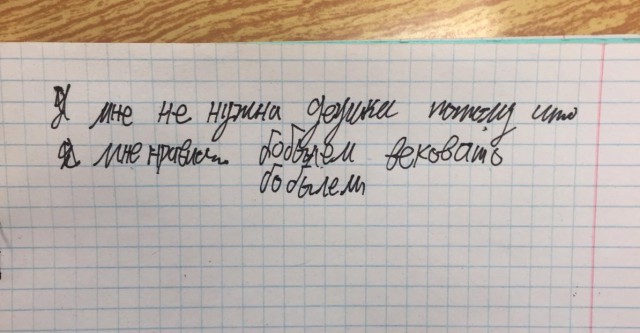 мне не нужна дружки потому что
мне нравись бобылем вековать
бобылем